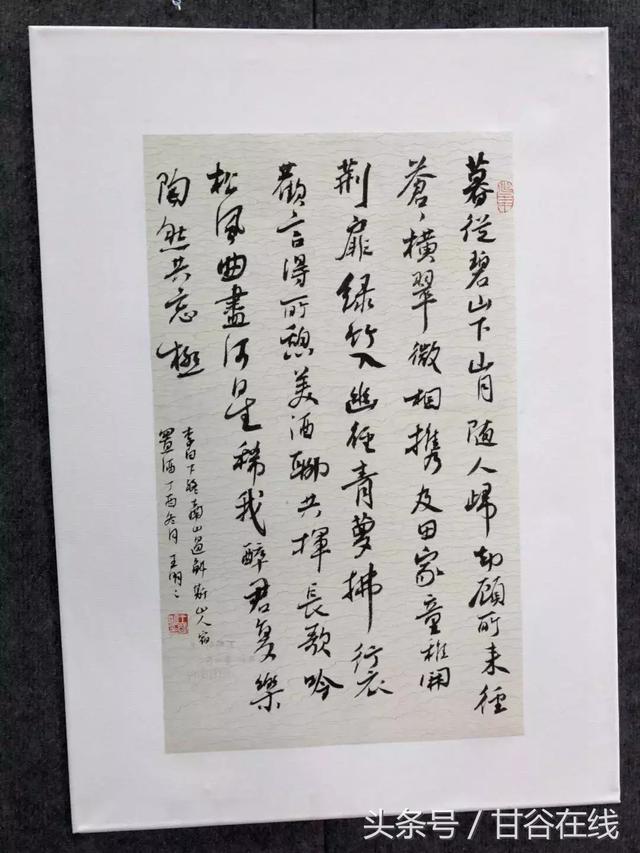 暮從碧山下山月随人歸却顧所来徑
蒼々横翠微相携及田家童稚開
荆扉緑竹入幽徑青萝拂行衣
歡言得所憩美酒聊共揮長歌吟
松風曲盡河星稀我醉君复樂
陶然共忘機
李白下终南山過斛斯山人宿
置酒丁酉冬月王明々
头条号 / 甘谷在线